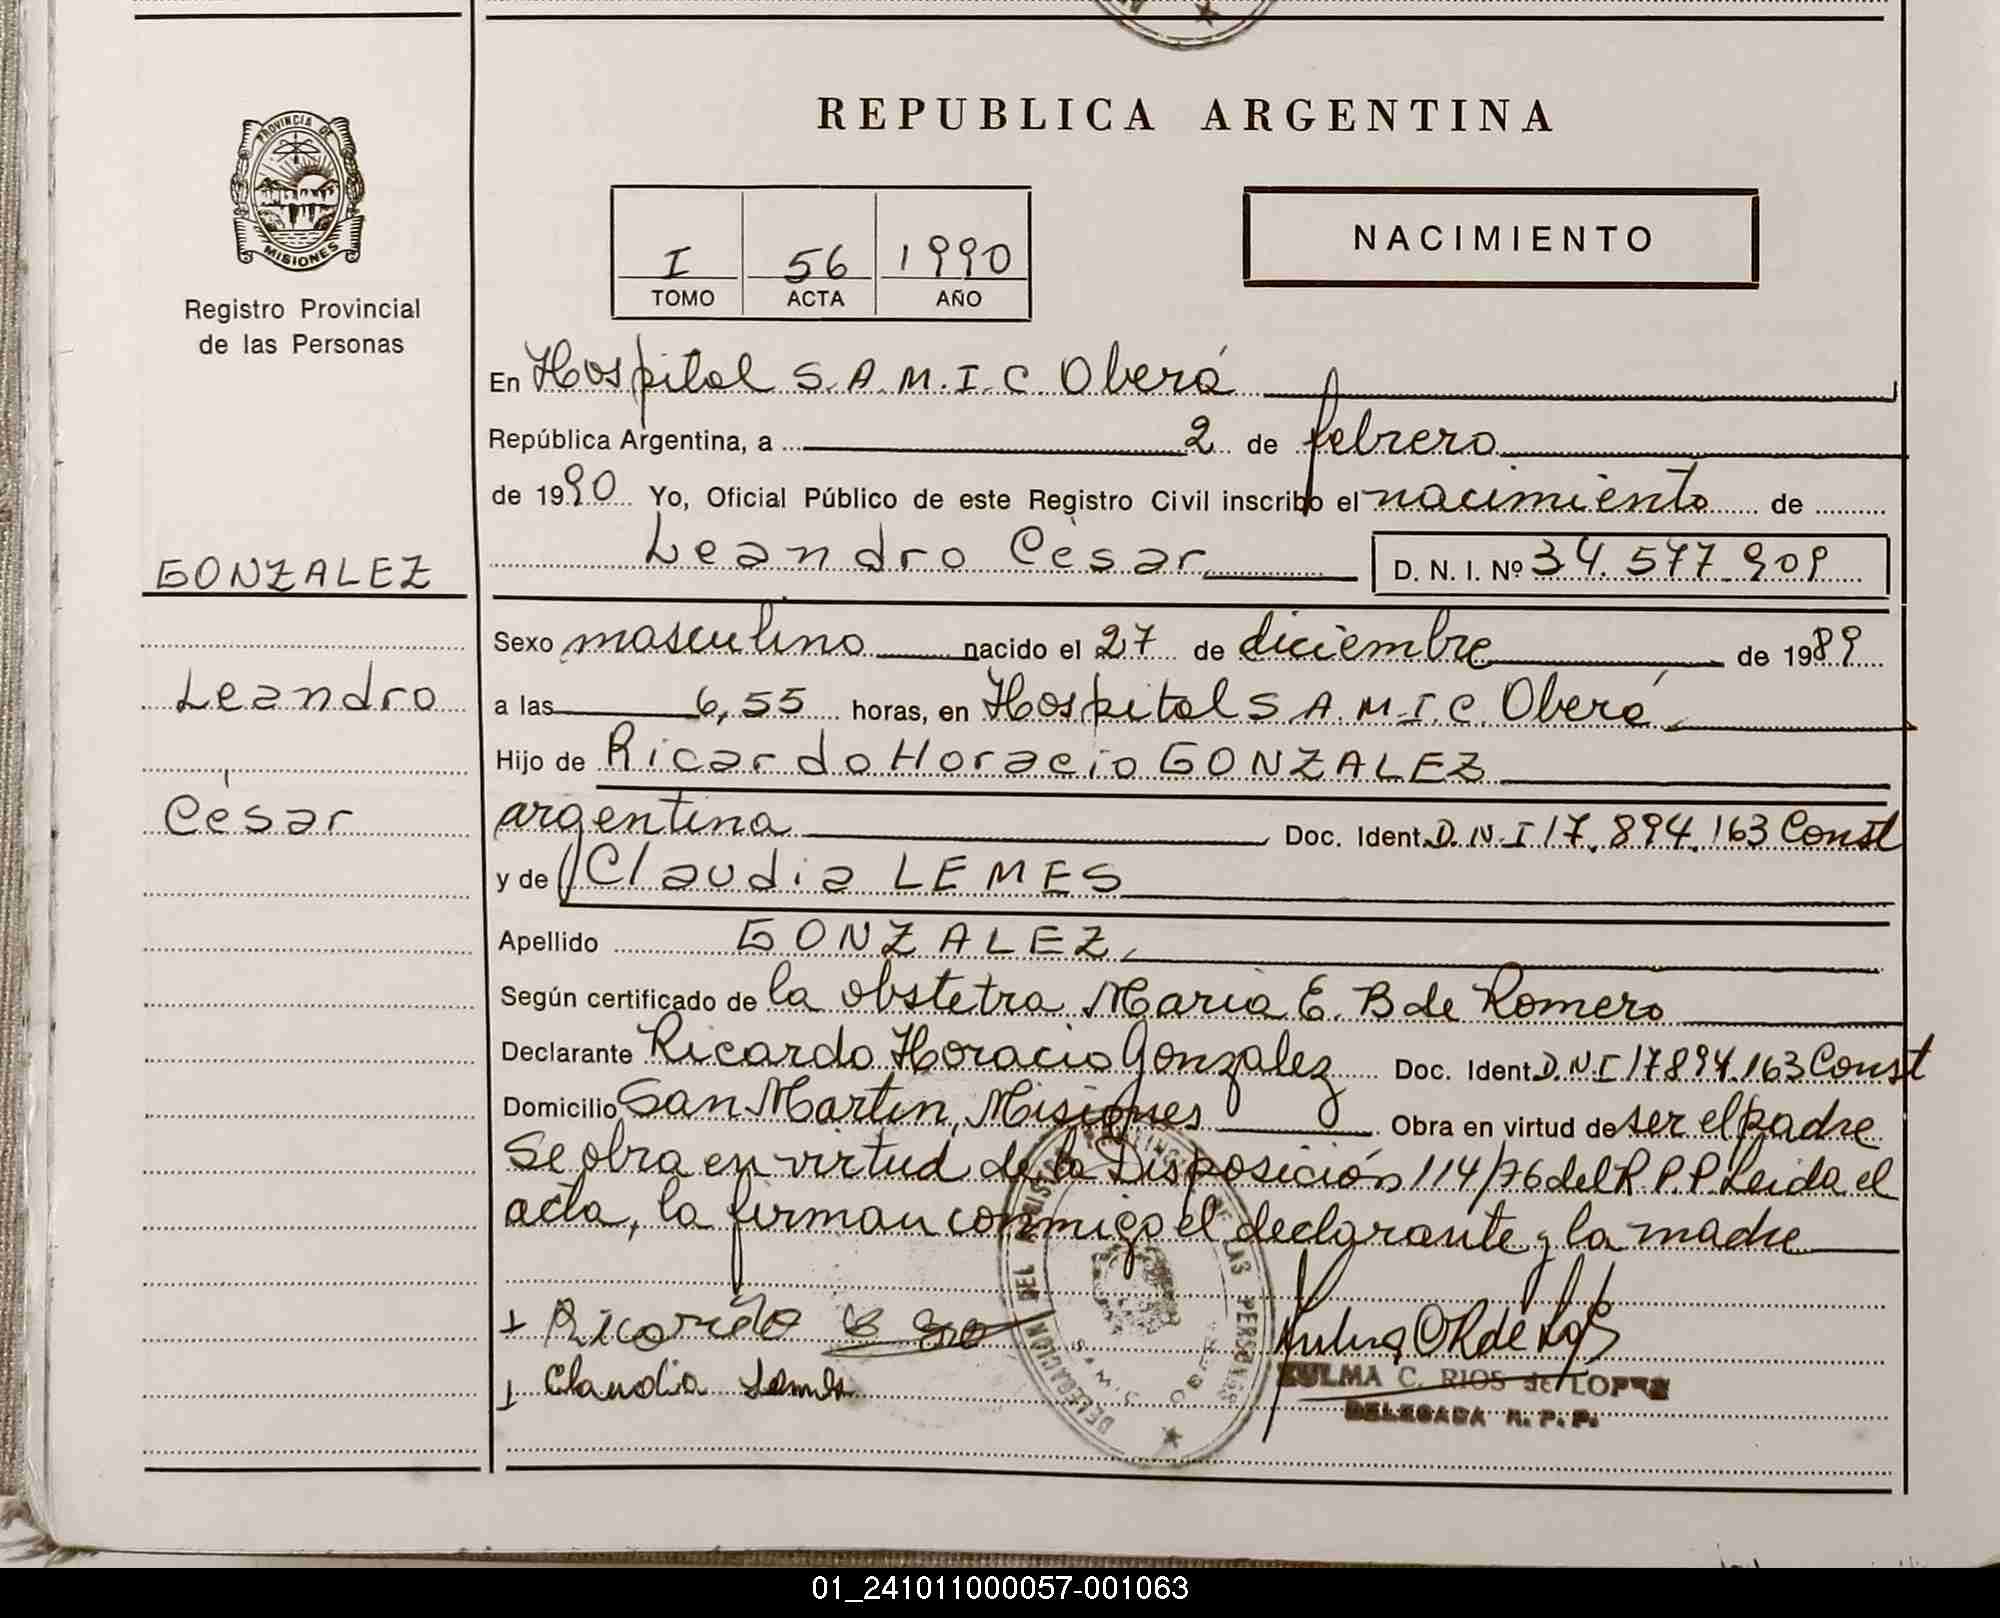 REPUBLICA ARGENTINA
PROVINCIA DE
MISIONES
Registro Provincial
de las Personas
I 56 1990
TOMO ACTA AÑO
NACIMIENTO
En Hospital S.A.M.I.C. Oberá
República Argentina, a 2 de febrero
de 1990 Yo, Oficial Público de este Registro Civil inscribo el nacimiento de
Leandro César D. N. I. Nº 34.577.909
GONZALEZ
Leandro
César
Sexo masculino nacido el 27 de diciembre de 1989
a las 6,55 horas, en Hospital S.A.M.I.C. Oberá
Hijo de Ricardo Horacio GONZALEZ
argentina Doc. Ident. D.N.I 17.894.163 Const
y de Claudia LEMES
Apellido GONZALEZ,
Según certificado de la obstetra Maria E. B de Romero
Declarante Ricardo Horacio Gonzalez Doc. Ident. D.N.I 17894.163 Const
Domicilio San Martin, Misiones Obra en virtud de ser el padre
Se obra en virtud de la Disposición 114/76 del R.P.P. Leida el
acta, la firman conmigo el declarante y la madre
Ricardo
Claudia Lemes
ZULMA C. RIOS de LOPEZ
DELEGADA R. P. P.
DELEGACION DEL LAS PERSONAS
01_241011000057-001063